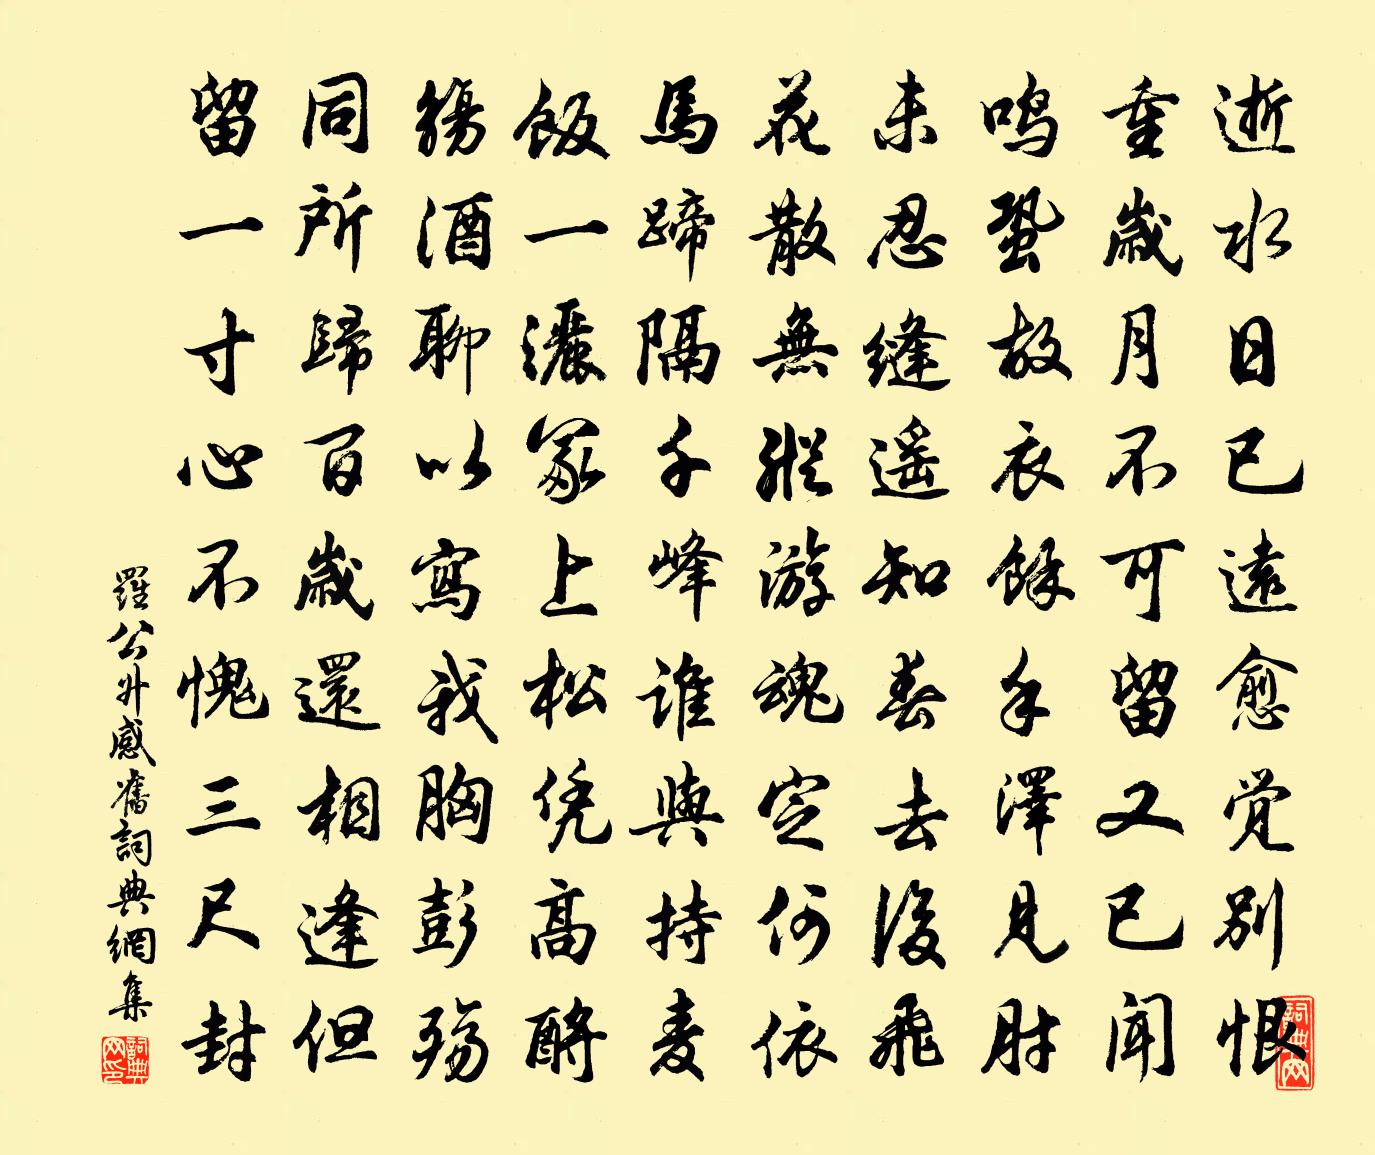 逝水日已遠愈觉別恨
重歲月不可留又已闻
鸣蛩故衣餘手澤見肘
未忍缝遥知春去後飛
花散無蹤游魂定何依
馬蹄隔千峰谁與持麦
飯一灑冢上松凭高酹
觴酒聊以寫我胸彭殇
同所歸百歲還相逢但
留一寸心不愧三尺封
羅公升感舊詞典網集
詞典网
詞典网印